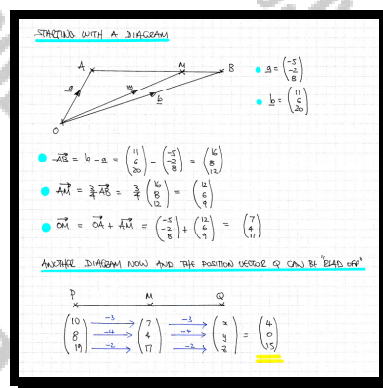 STARTING WITH A DIAGRAM
A M B
a m b
O
a = (-5 -2 8)
b = (11 6 20)
AB = b - a = (11 6 20) - (-5 -2 8) = (16 8 12)
AM = 3/4 AB = 3/4 (16 8 12) = (12 6 9)
OM = OA + AM = (-5 -2 8) + (12 6 9) = (7 4 17)
ANOTHER DIAGRAM NOW AND THE POSITION VECTOR Q CAN BE "READ OFF"
P M Q
(10 8 19) -3 -4 -2 (7 4 17) -3 -4 -2 (x y z) = (4 0 15)